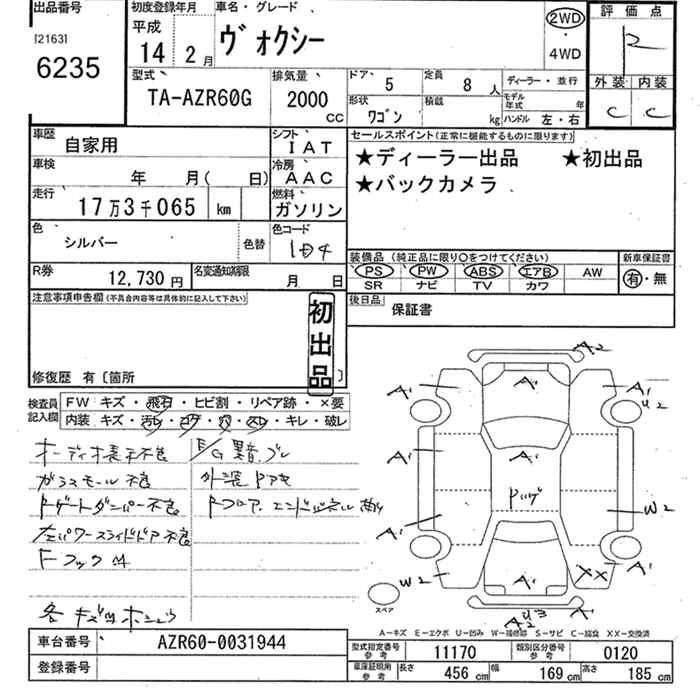 出品番号
[2163]
6235
初度登録年月
平成
14 年 2 月
車名・グレード
ヴォクシー
2WD
・
4WD
評価点
R
外装 内装
C C
型式
TA-AZR60G
排気量
2000 CC
ドア 5
定員 8 人
形状 ワゴン
積載 kg
ディーラー・並行
モデル年式 年
ハンドル 左・右
車歴 自家用
シフト IAT
車検 年 月( 日)
冷房 AAC
走行 17万3千065 km
燃料 ガソリン
色 シルバー
色替
色コード 1D4
R券 12,730 円
名変通知期限 月 日
セールスポイント(正常に機能するものに限ります)
★ディーラー出品 ★初出品
★バックカメラ
装備品 (純正品に限り○をつけてください)
PS PW ABS エアB AW
SR ナビ TV カワ
新車保証書
有・無
後日品
保証書
注意事項申告欄(不具合内容等は具体的に記入して下さい)
初出品
修復歴 有〔箇所 〕
検査員記入欄
FW キズ・飛石・ヒビ割・リペア跡・×要
内装 キズ・汚レ・コゲ・穴・スレ・キレ・破レ
オーディオ様子不良
ガラスモール不良
Rゲートダンパー不良
左パワースライドドア不良
Fフック
各キズ凹
E/G異音
外装
Rフロア エンドパネル
A2
A1
A1
A1
U2
A1
A1
A1
W2
A1
W2
A1
XX
A1
スペア
A-キズ E-エクボ U-凹み W-補修跡 S-サビ C-腐食 XX-交換済
車台番号 AZR60-0031944
登録番号
型式指定番号 参考 11170
類別区分番号 参考 0120
車庫証明用 参考
長さ 456 cm
幅 169 cm
高さ 185 cm